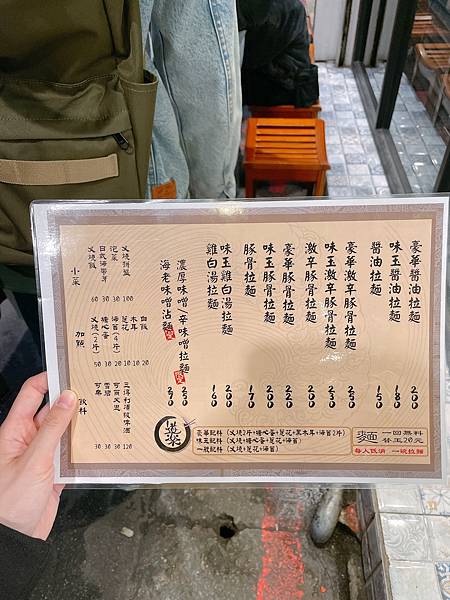 豪華醬油拉麵 200
味玉醬油拉麵 180
醬油拉麵 150
豪華激辛豚骨拉麵 250
味玉激辛豚骨拉麵 230
激辛豚骨拉麵 200
豪華豚骨拉麵 220
味玉豚骨拉麵 200
豚骨拉麵 170
味玉雞白湯拉麵 200
雞白湯拉麵 160
濃厚味噌/辛味噌拉麵
海老味噌沾麵
叉燒拼盤 100
泡菜 30
日式海帶芽 30
叉燒飯 60
小菜
白飯
木耳
筍花
海苔(4片)
糖心蛋
叉燒(2片) 50
加點
三得利頂級啤酒 120
可爾必思 30
雪碧 30
可樂 30
飲料
豪華配料 (叉燒2片+糖心蛋+筍花+黑木耳+海苔2片)
味玉配料 (叉燒+糖心蛋+筍花+海苔)
一般配料 (叉燒+筍花+海苔)
麵 一回無料
替玉20元
每人低消 一碗拉麵